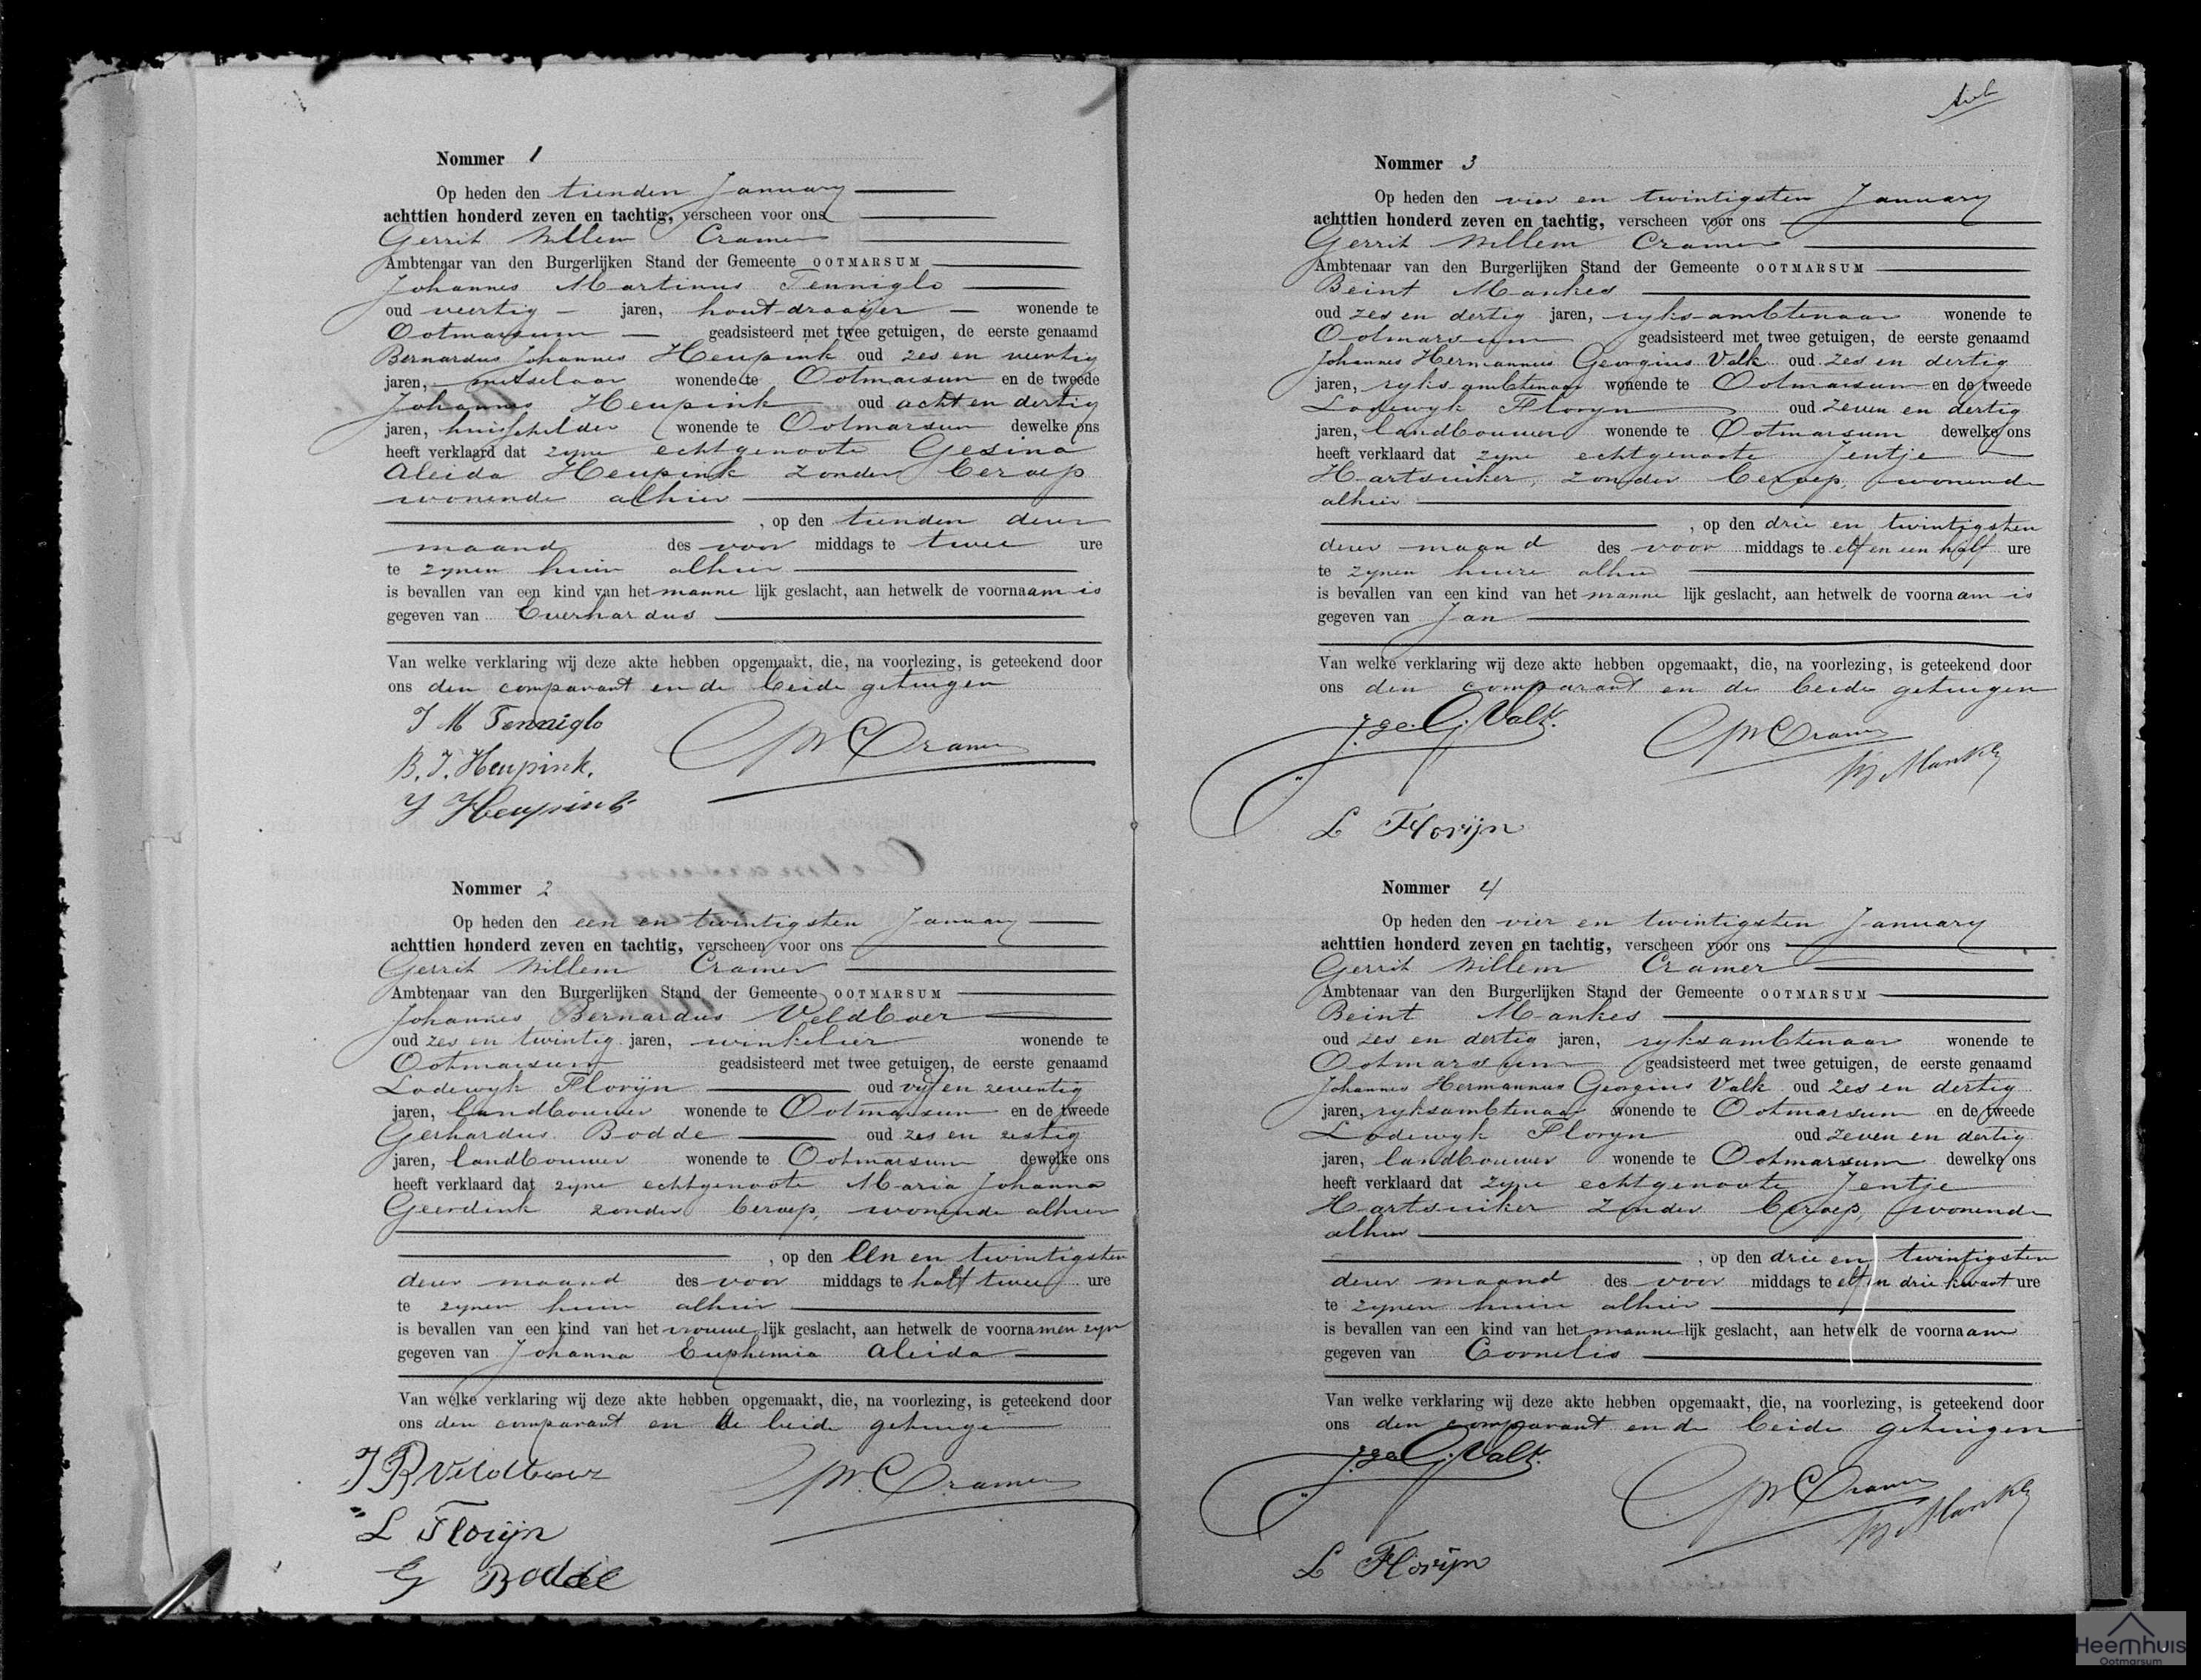 Nommer 1
Op heden den tienden January
achttien honderd zeven en tachtig, verscheen voor ons
Gerrit Willem Cramer
Ambtenaar van den Burgerlijken Stand der Gemeente OOTMARSUM
Johannes Martinus Tenniglo
oud veertig jaren, houtdraaijer wonende te
Ootmarsum geadsisteerd met twee getuigen, de eerste genaamd
Bernardus Johannes Heupink oud zes en veertig
jaren, metselaar wonende te Ootmarsum en de tweede
Johannes Heupink oud acht en dertig
jaren, huisschilder wonende te Ootmarsum dewelke ons
heeft verklaard dat zyne echtgenoote Gesina
Aleida Heupink zonder beroep
wonende alhier
, op den tienden dezer
maand des voor middags te twee ure
te zynen huize alhier
is bevallen van een kind van het manne lijk geslacht, aan hetwelk de voornaam is
gegeven van Everhardus
Van welke verklaring wij deze akte hebben opgemaakt, die, na voorlezing, is geteekend door
ons den comparant en de beide getuigen
J M Tenniglo
GW Cramer
B. J. Heupink.
J Heupink
Nommer 2
Op heden den een en twintigsten January
achttien honderd zeven en tachtig, verscheen voor ons
Gerrit Willem Cramer
Ambtenaar van den Burgerlijken Stand der Gemeente OOTMARSUM
Johannes Bernardus Veldboer
oud zes en twintig jaren, winkelier wonende te
Ootmarsum geadsisteerd met twee getuigen, de eerste genaamd
Lodewyk Floryn oud vyf en zeventig
jaren, landbouwer wonende te Ootmarsum en de tweede
Gerhardus Bodde oud zes en zestig
jaren, landbouwer wonende te Ootmarsum dewelke ons
heeft verklaard dat zyne echtgenoote Maria Johanna
Geerdink zonder beroep, wonende alhier
, op den een en twintigsten
dezer maand des voor middags te half twee ure
te zynen huize alhier
is bevallen van een kind van het vrouwe lijk geslacht, aan hetwelk de voornamen zyn
gegeven van Johanna Euphemia Aleida
Van welke verklaring wij deze akte hebben opgemaakt, die, na voorlezing, is geteekend door
ons den comparant en de beide getuige
J B Veldboer
GW Cramer
L Florijn
G Bodde
Nommer 3
Op heden den vier en twintigsten January
achttien honderd zeven en tachtig, verscheen voor ons
Gerrit Willem Cramer
Ambtenaar van den Burgerlijken Stand der Gemeente OOTMARSUM
Beint Mankes
oud zes en dertig jaren, ryksambtenaar wonende te
Ootmarsum geadsisteerd met twee getuigen, de eerste genaamd
Johannes Hermannus Georgius Valk oud zes en dertig
jaren, ryksambtenaar wonende te Ootmarsum en de tweede
Lodewyk Floryn oud zeven en dertig
jaren, landbouwer wonende te Ootmarsum dewelke ons
heeft verklaard dat zyne echtgenoote Jentje
Hartsuiker, zonder beroep, wonende
alhier
, op den drie en twintigsten
dezer maand des voor middags te elf en een half ure
te zynen huize alhier
is bevallen van een kind van het manne lijk geslacht, aan hetwelk de voornaam is
gegeven van Jan
Van welke verklaring wij deze akte hebben opgemaakt, die, na voorlezing, is geteekend door
ons den comparant en de beide getuigen
G. Valk.
GW Cramer
B Mankes
L Florijn
Nommer 4
Op heden den vier en twintigsten January
achttien honderd zeven en tachtig, verscheen voor ons
Gerrit Willem Cramer
Ambtenaar van den Burgerlijken Stand der Gemeente OOTMARSUM
Beint Mankes
oud zes en dertig jaren, ryksambtenaar wonende te
Ootmarsum geadsisteerd met twee getuigen, de eerste genaamd
Johannes Hermannus Georgius Valk oud zes en dertig
jaren, ryksambtenaar wonende te Ootmarsum en de tweede
Lodewyk Floryn oud zeven en dertig
jaren, landbouwer wonende te Ootmarsum dewelke ons
heeft verklaard dat zyne echtgenoote Jentje
Hartsuiker zonder beroep, wonende
alhier
, op den drie en twintigsten
dezer maand des voor middags te elf en drie kwart ure
te zynen huize alhier
is bevallen van een kind van het manne lijk geslacht, aan hetwelk de voornaam
gegeven van Cornelis
Van welke verklaring wij deze akte hebben opgemaakt, die, na voorlezing, is geteekend door
ons den comparant en de beide getuigen
G. Valk.
GW Cramer
B Mankes
L Florijn
Heemhuis
Ootmarsum